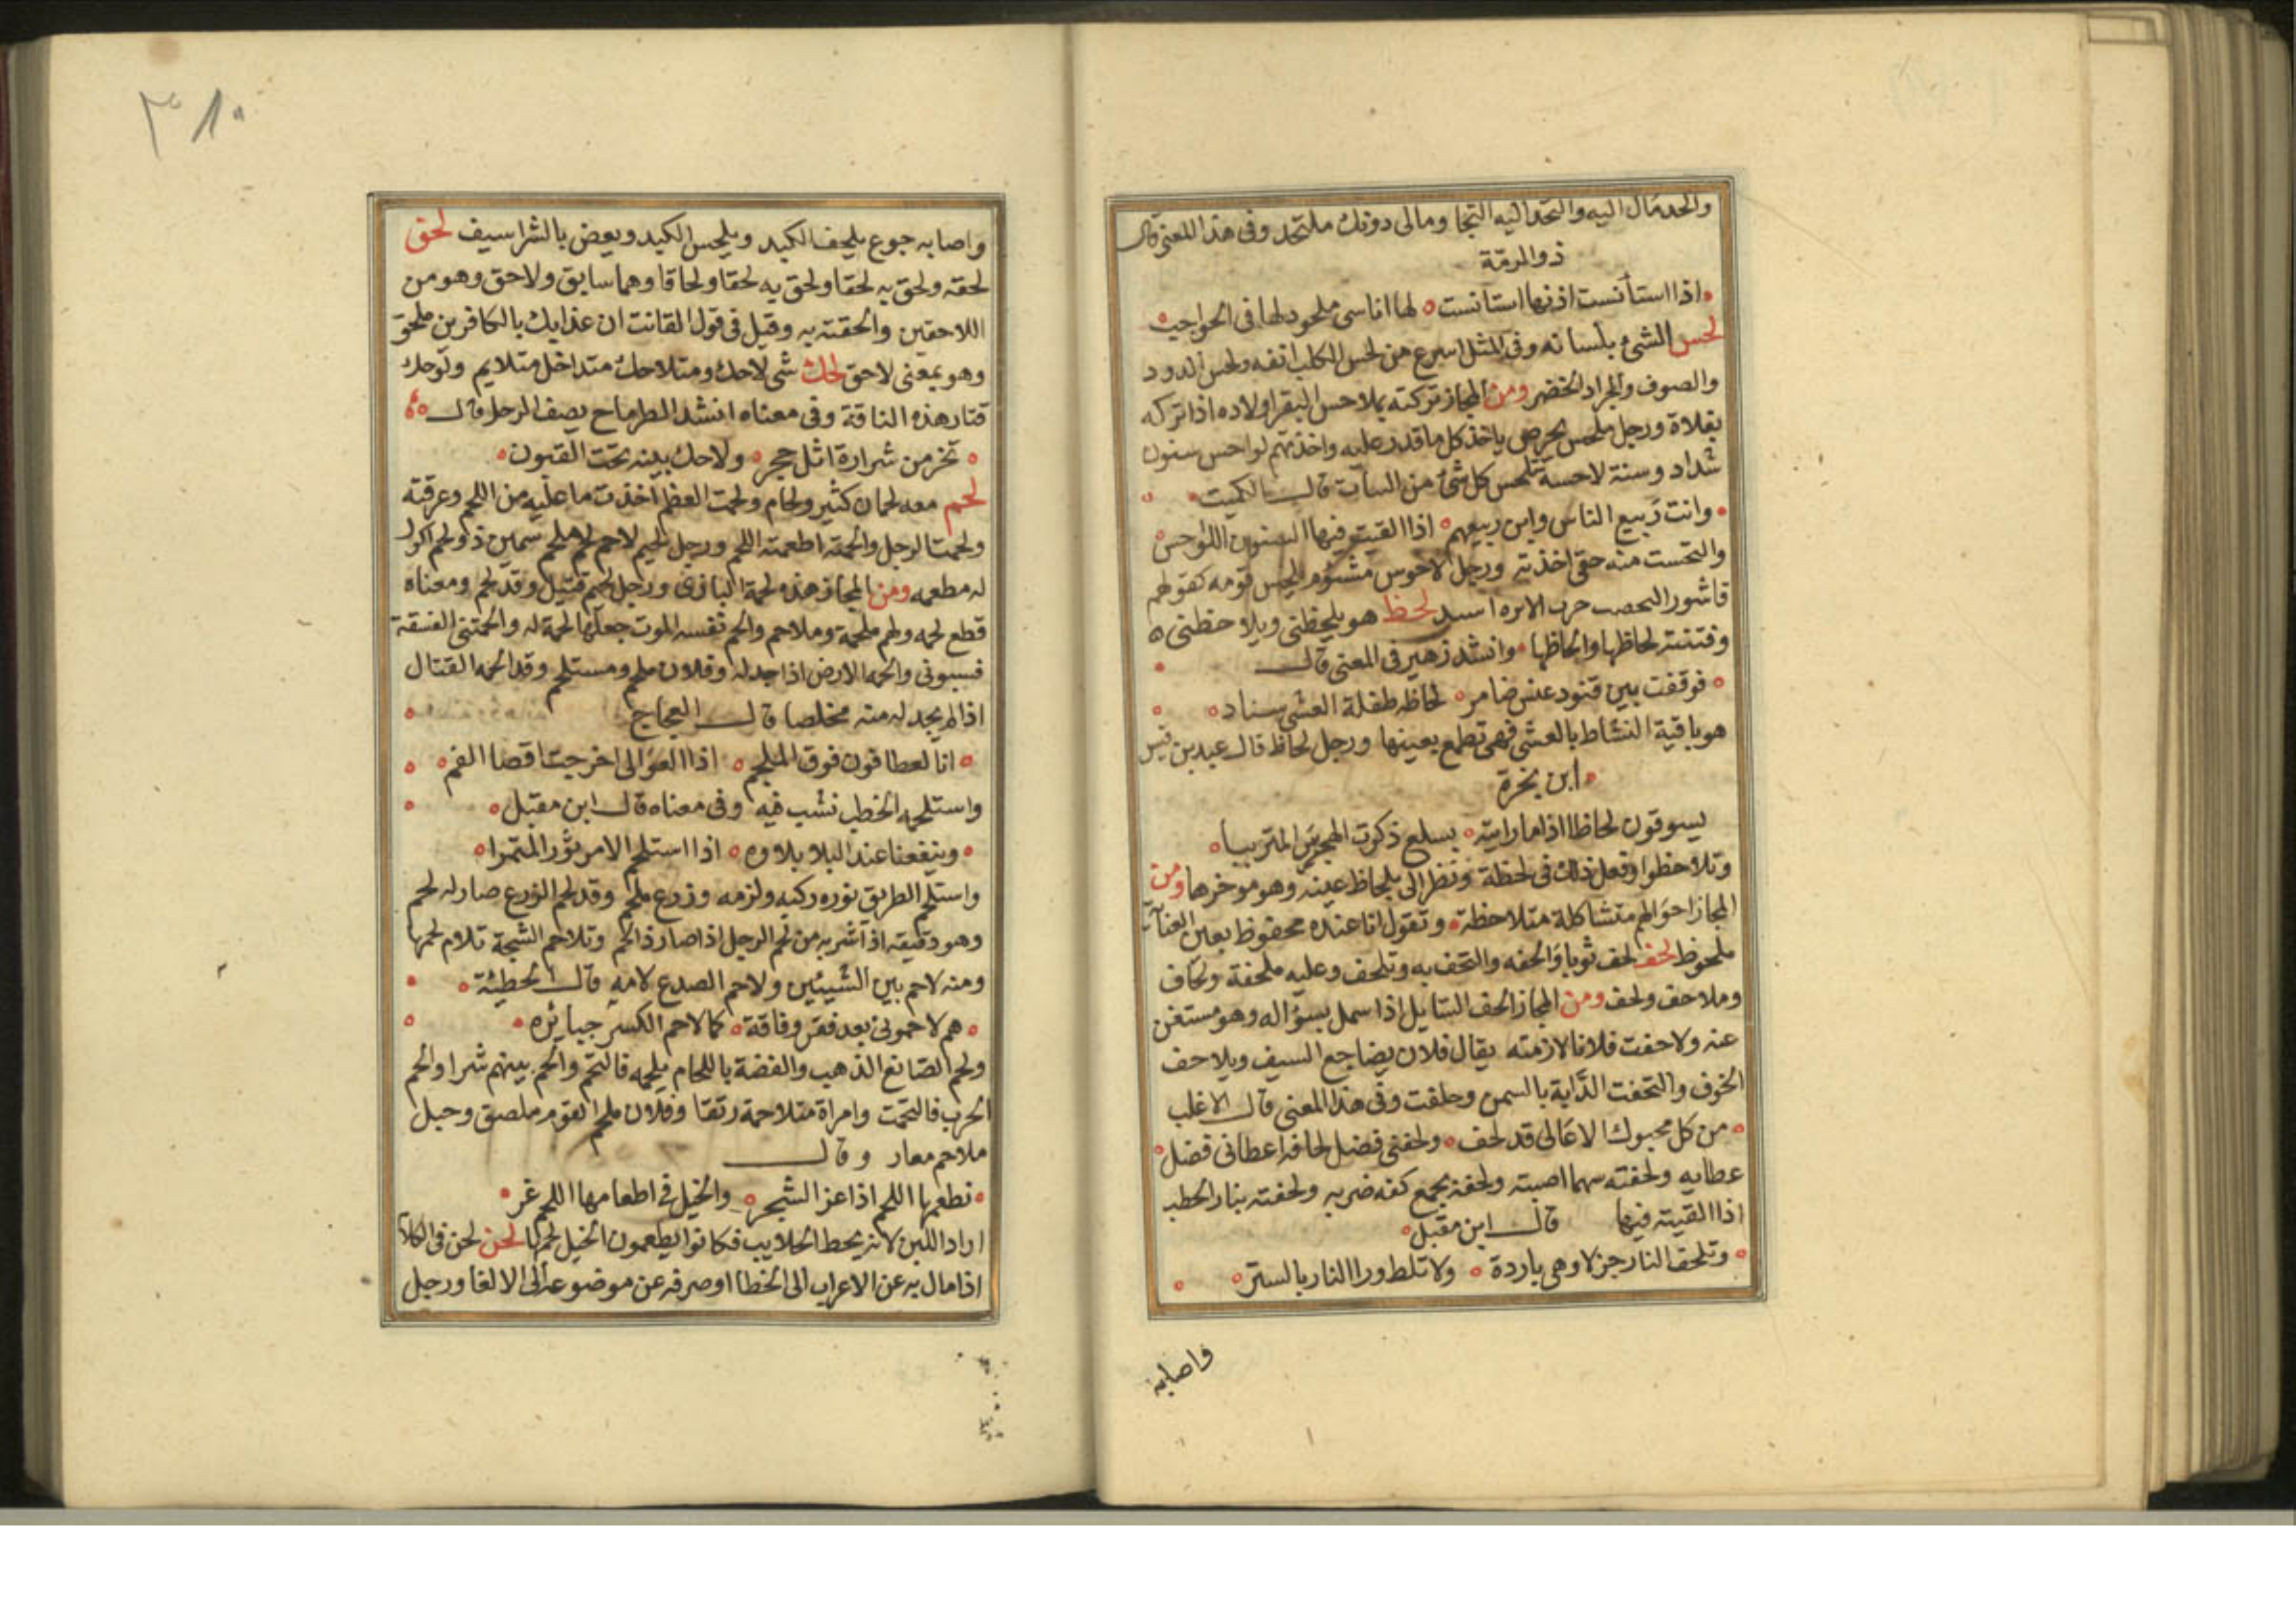 والحد مال اليه والتحد اليه التجا ومالى دونك ملتحد وفى هذا المعنى قال
ذو الرمة
اذا استأنست اذنها استانست لها اناسى ملحود لها فى الحواجب
لحس الشىء بلسانه وفى المثل اسرع من لحس الكلب انفه ولحس الدود
والصوف والجراد الخضر ومن المجاز تركته بملاحس البقر اولاده اذا تركه
بفلاة ورجل ملحس حريص ياخذ كل ما قدر عليه واخذتهم لواحس سنون
شداد وسنة لاحسة تلحس كل شئ من النبات قال الكميت
وانت ربيع الناس وابن ربيعهم اذا القيت فيها السنون اللواحس
والتحست منه حقى اخذته ورجل لاحوس مشئوم يلحس قومه كقولهم
قاشور لحظ هو يلحظنى ويلاحظنى
وفتنته لحاظها والحاظها وانشد زهير فى المعنى قال
فوقفت بين قتود عنس ضامر لحاظه طفلة العشى سناد
هو باقية النشاط بالعشى فهى تطمع بعينها ورجل لحاظ قال عبيد بن قيس
ابن بخرة
يسوقون لحاظا اذا ما رايته بسلع ذكرت الهجرس المتريبا
وتلاحظوا وفعل ذلك فى لحظة ونظر الى بلحاظ عينه وهو موخرها ومن
المجاز احوالهم متشاكلة متلاحظة وتقول انا عنده محفوظ بعين العناية
ملحوظ لحف لحف ثوبا والحفه والتحف به وتلحف وعليه ملحفة ولحاف
وملاحف ولحف ومن المجاز الحف السايل اذا سمل بسؤاله وهو مستغن
عنه ولاحفت فلانا لازمته يقال فلان يضاجع السيف ويلاحف
الخوف والتحفت الدابة بالسمن وحلقت وفى هذا المعنى قال الاغلب
من كل محبوك الاعالى قد لحف ولحفنى فضل لحافه اعطانى فضل
عطايه ولحفته سهما اصبته ولحفنه بجمع كفه ضربه ولحفته بنار الحطب
اذا القيته فيها قال ابن مقبل
وتلحف النار جزلا وهى باردة ولا تلط ورا النار بالستر
واصابه
٣٨٠
واصابه جوع يلحف الكبد ويلحس الكبد ويعض بالشراسيف لحق
لحقه ولحق به لحقا ولحق به لحقا ولحاقا وهما سابق ولاحق وهو من
اللاحقين والحقته به وقيل فى قول القانت ان عذابك بالكافرين ملحق
وهو بمعنى لاحق لحك شى لاحك ومتلاحك متداخل متلايم ولوحك
فقار هذه الناقة وفى معناه انشد الطرماح يصف الرحل قال
تخر من شرارة اثل حجر ولاحك بينه نحت القيون
لحم معه لحمان كثير ولحام ولحمت العظم اخذت ما عليه من اللحم وعرقته
ولحمت الرجل والحمته اطعمته اللحم ورجل لحيم لاحم لحم ملحم سمين ذو لحم اكول
له مطعمه ومن المجاز هذه لحمة البازى ورجل لحيم قتيل وقد لحم ومعناه
قطع لحمه ولهم ملحمة وملاحم والحم نفسه الموت جعلها لحمة له والحمتنى الفسقة
فسبونى والحمه الارض اذا جدله وفلان ملحم ومستلحم وقد الحمه القتال
اذا لم يجد له منه مخلصا قال العجاج
انا لعطافون فوق الملحم اذا العوالى اخرجت اقصا الفم
واستلحمه الخطب نشب فيه وفى معناه قال ابن مقبل
وينفعنا عند البلا بلاوه اذا استلحم الامر الدثور المتمرا
واستلحم الطريق نوره ركبه ولزمه وزرع ملحم وقد لحم الزرع صار له لحم
وهو دقيقه اذا شربه من لحم الرجل اذا صار ذا لحم وتلاحم الشجة تلاوم لحمها
ومنه لاحم بين الشيئين ولاحم الصدع لامه قال الحطيئة
هم لاحمونى بعد فقر وفاقة كما لاحم الكسر جبائره
ولحم الصانع الذهب والفضة باللحام يلحمه فالتحم والحم بينهم شرا والحم
الحرب فالتحمت وامراة متلاحمة رتقا وفلان ملحم القوم ملصق وحبل
ملاحم مغار وقال
نطعمها اللحم اذا عز الشجر والخيل فى اطعامها اللحم غر
اراد اللبن لانه يحط الحلايب فكانوا يطعمون الخيل لحمها لحن لحن فى الكلام
اذا مال به عن الاعراب الى الخطا او صرفه عن موضوعه الى الالغا ورجل